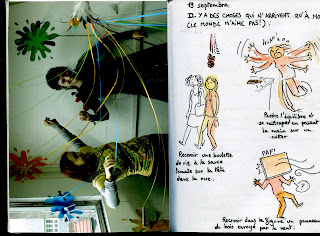 13 septembre
IL Y A DES CHOSES QUI N'ARRIVENT QU'À MO
(LE MONDE M'AIME PAS!) :
Perdre l'équilibre et
se rattraper en posant
la main sur un
cutter
Recevoir une boulette
de riz à la sauce
tomate sur la tête
dans la rue.
PAF!
Recevoir dans la figure un panneau
de bois envoyé par le vent.